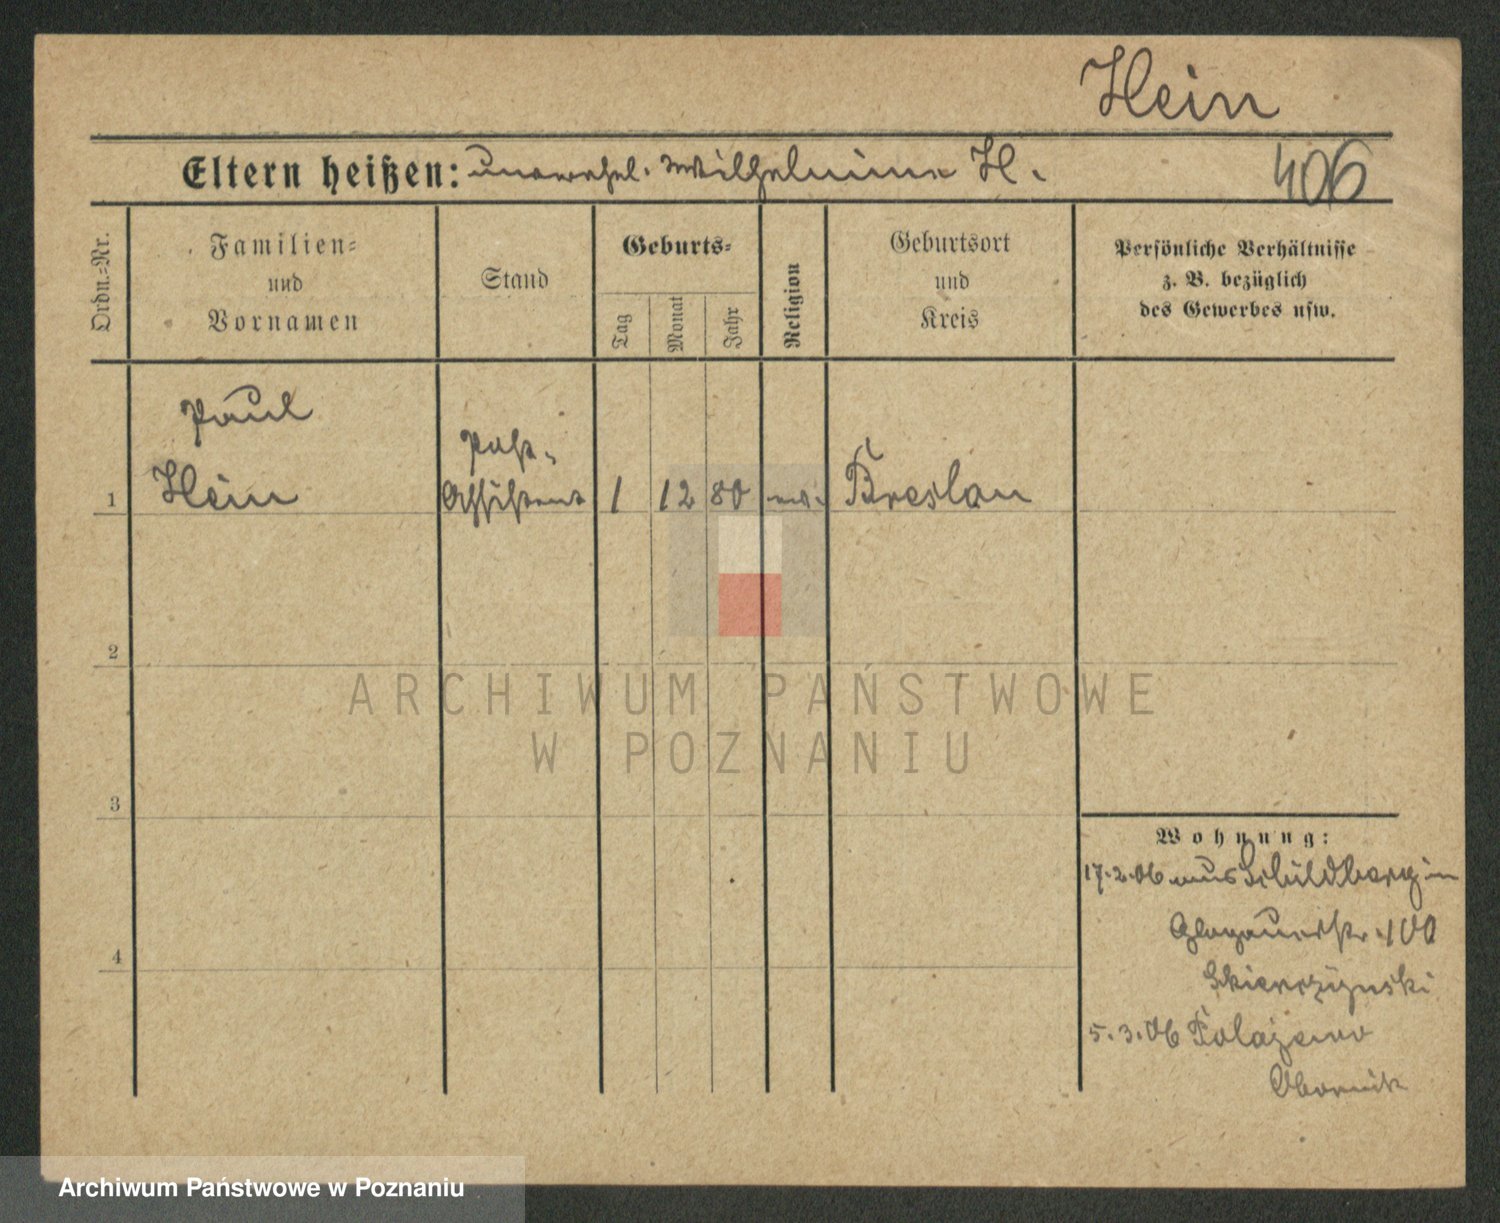 Hein
Eltern heißen: unverehel. Wilhelmine H.
406
Ordn.-Nr.
Familien-
und
Vornamen
Stand
Geburts-
Tag
Monat
Jahr
Religion
Geburtsort
und
Kreis
Persönliche Verhältnisse
z. B. bezüglich
des Gewerbes usw.
Paul
Hein
Post-
Assistent
1
1
12
80
ev.
Breslau
2
3
4
Wohnung:
17.2.06 aus Schildberg in
Glogauerstr. 100
5.3.06 Polajewo
Obornik
ARCHIWUM PAŃSTWOWE
W POZNANIU
Archiwum Państwowe w Poznaniu